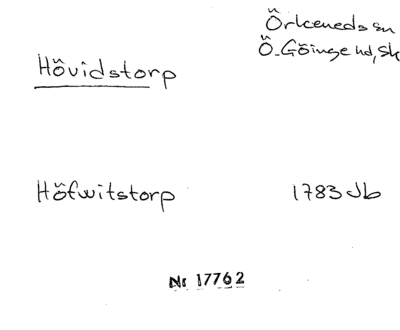 Örkeneds sn
Ö. Göinge hd, Sk
Hövidstorp
Höfwitstorp 1783 Jb
Nr 17762